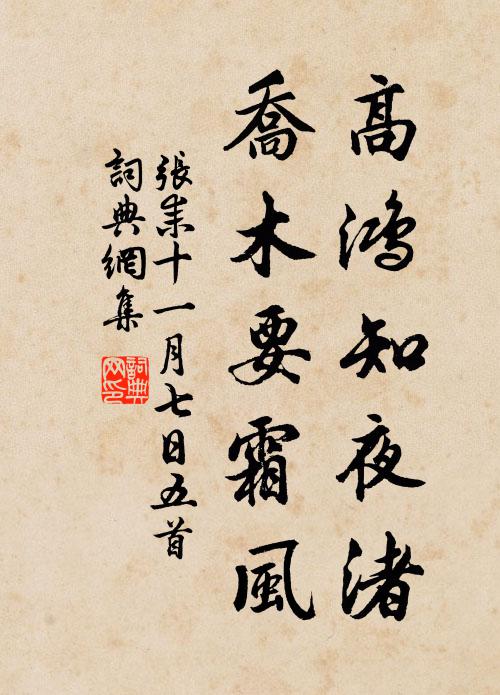 高鴻知夜渚
喬木要霜風
張耒十一月七日五首
詞典網集
詞典
网印